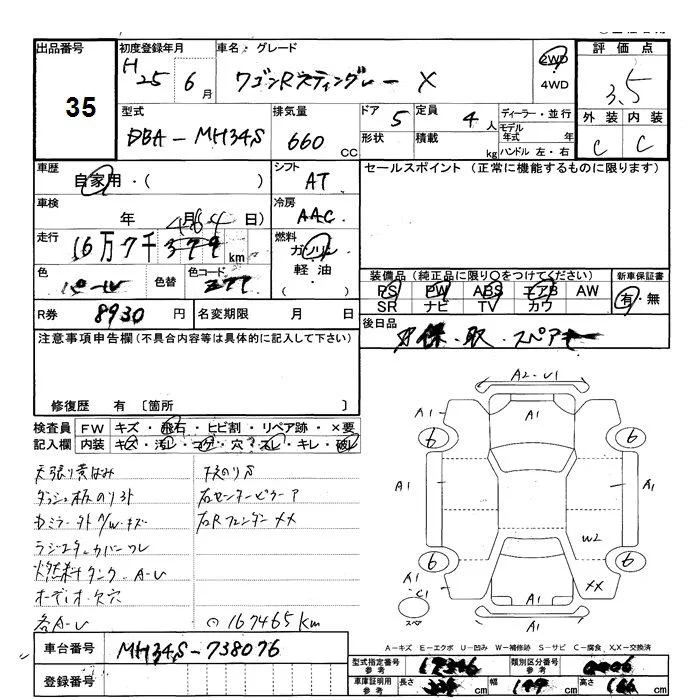 出品番号 初度登録年月 車名・グレード 評価点
35
H 25 6月 ワゴンRスティングレー X 2WD 4WD 3.5
外装 内装
C C
型式 排気量 ドア 定員 ディーラー・並行
DBA-MH34S 660 CC 5 4人
形状 積載 kg モデル年式 年
ハンドル 左・右
車歴 シフト セールスポイント(正常に機能するものに限ります)
自家用・( ) AT
車検 年 月 日) 冷房 AAC
464
走行 16万7千379km 燃料 ガソリン・軽油・( )
色 パール 色替 色コード
装備品(純正品に限り○をつけてください) 新車保証書
PS PW ABS エアB AW 有・無
SR ナビ TV カワ
R券 8930円 名変期限 月 日 後日品
保・取・スペアキー
注意事項申告欄(不具合内容等は具体的に記入して下さい)
修復歴 有 〔箇所 〕
検査員記入欄 FW キズ・飛石・ヒビ割・リペア跡・×要
内装 キズ・汚レ・コゲ・穴・スレ・キレ・破レ
天張り黄ばみ
ダッシュ板のり外
ラジエタカバーワレ
燃料タンク A-U
オーディオ欠穴
各A-U
右センターピラーア
右Rフェンダー XX
⊙167465km
A2-U1
A1
A1
A1
A1
A1
6
6
6
6
W2
XX
A1
C1
A1
A1
スペ
A-キズ E-エクボ U-凹み W-補修跡 S-サビ C-腐食 X,XX-交換済
車台番号 MH34S-738076
登録番号
型式指定番号参考 17346 類別区分番号参考 0006
車庫証明用参考 長さ 339cm 幅 147cm 高さ 166cm